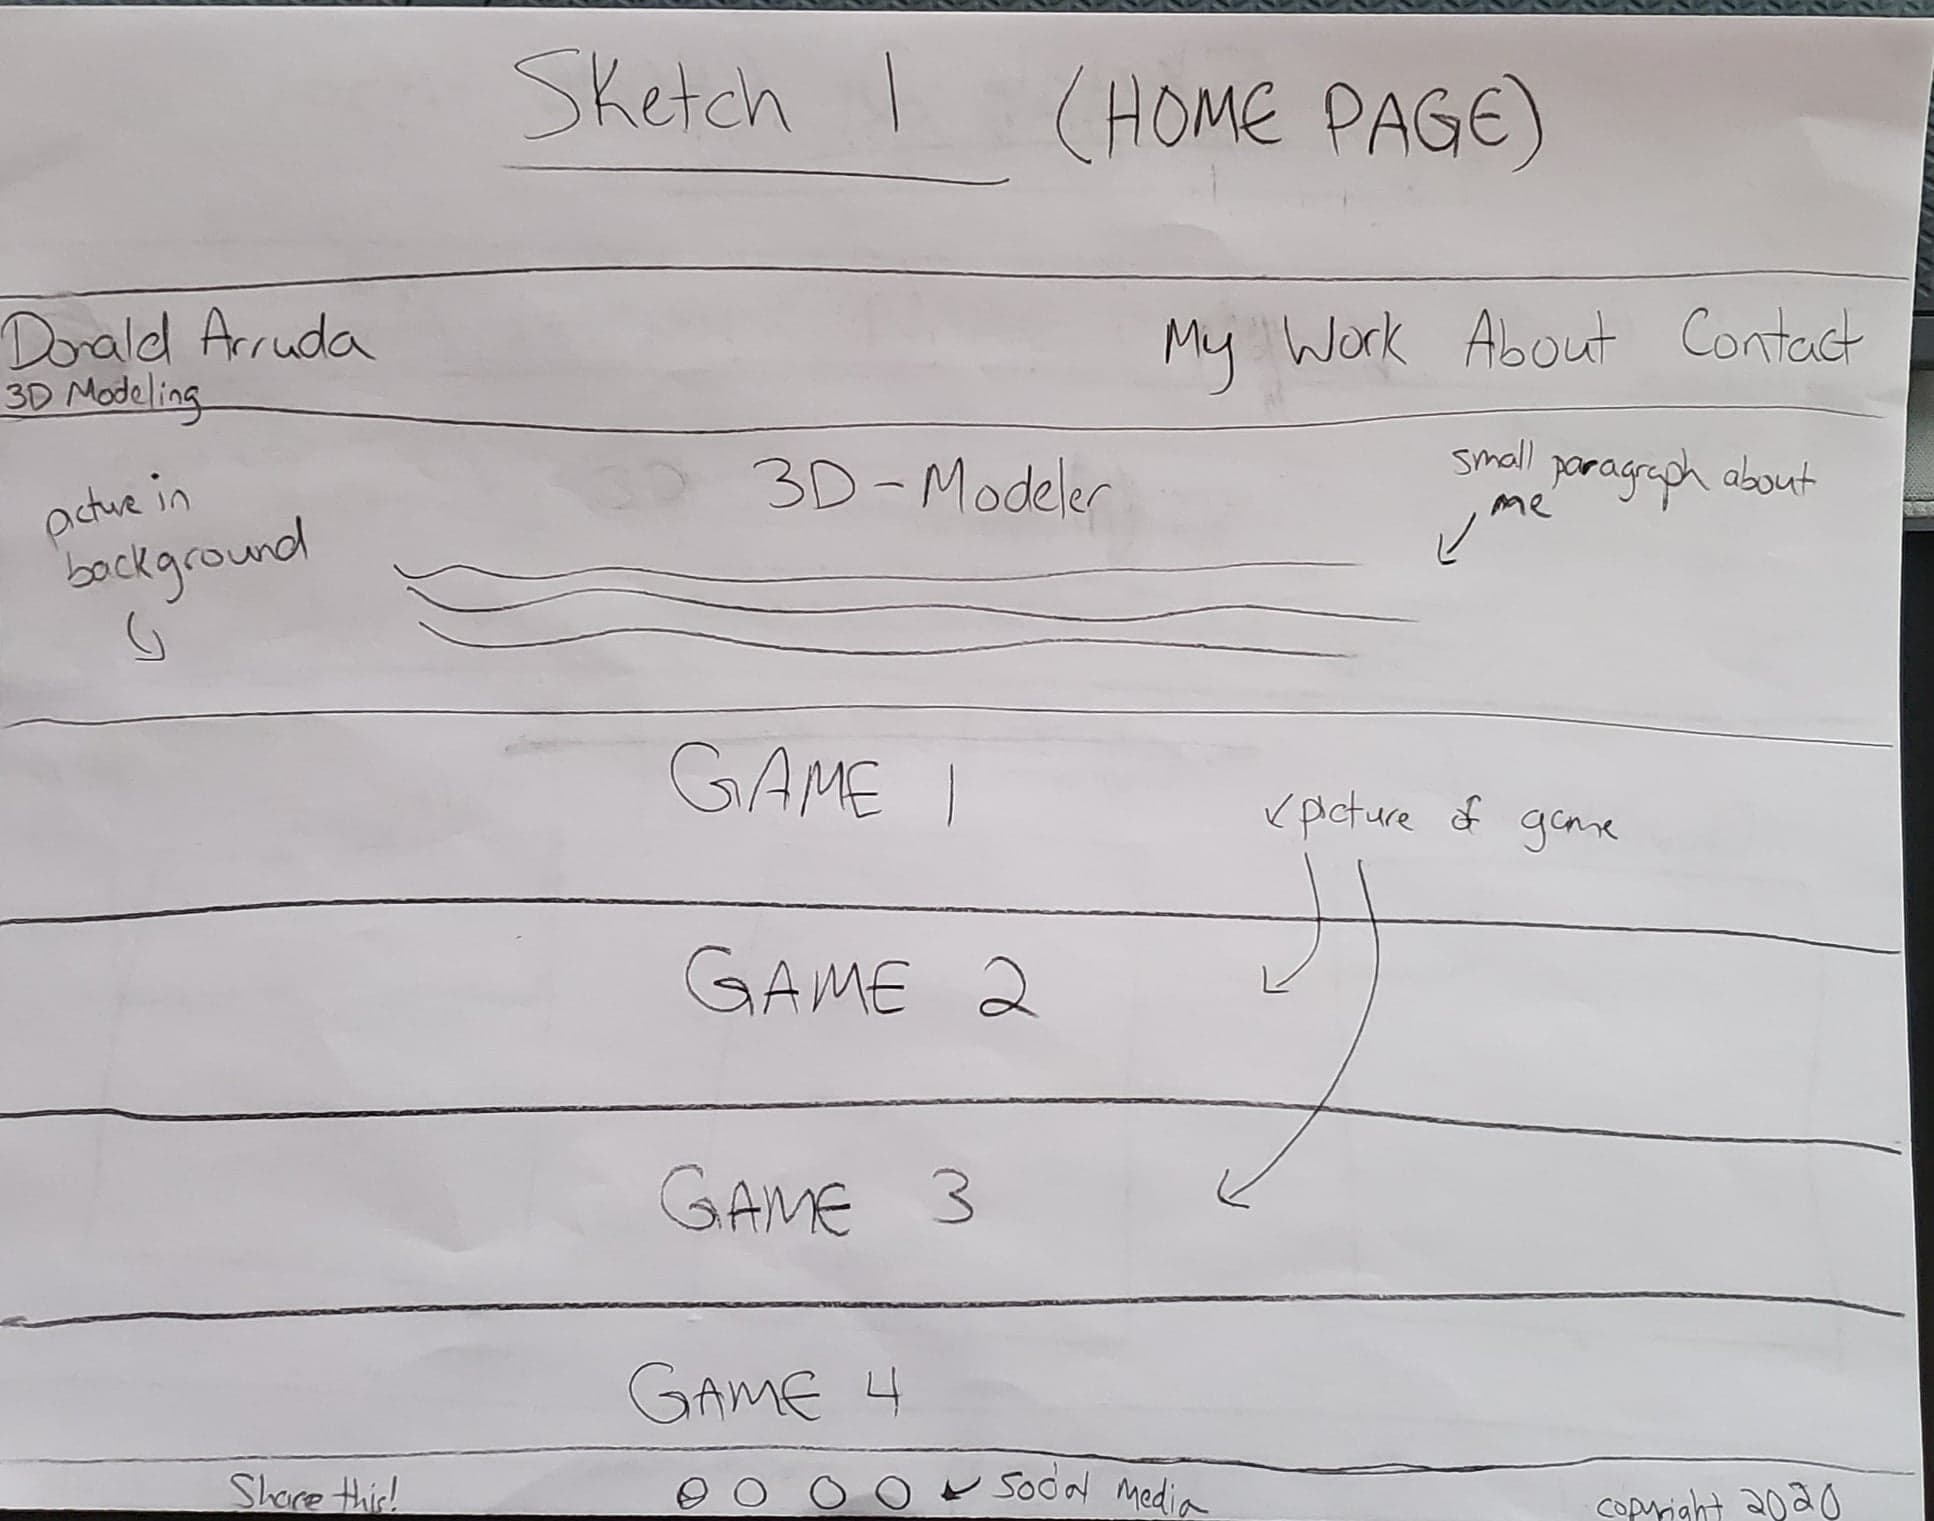 Sketch 1 (HOME PAGE)
Donald Arruda
3D Modeling
My Work About Contact
picture in
background
3D-Modeler
small paragraph about
me
GAME 1
picture of game
GAME 2
GAME 3
GAME 4
Share this!
Social Media
copyright 2020